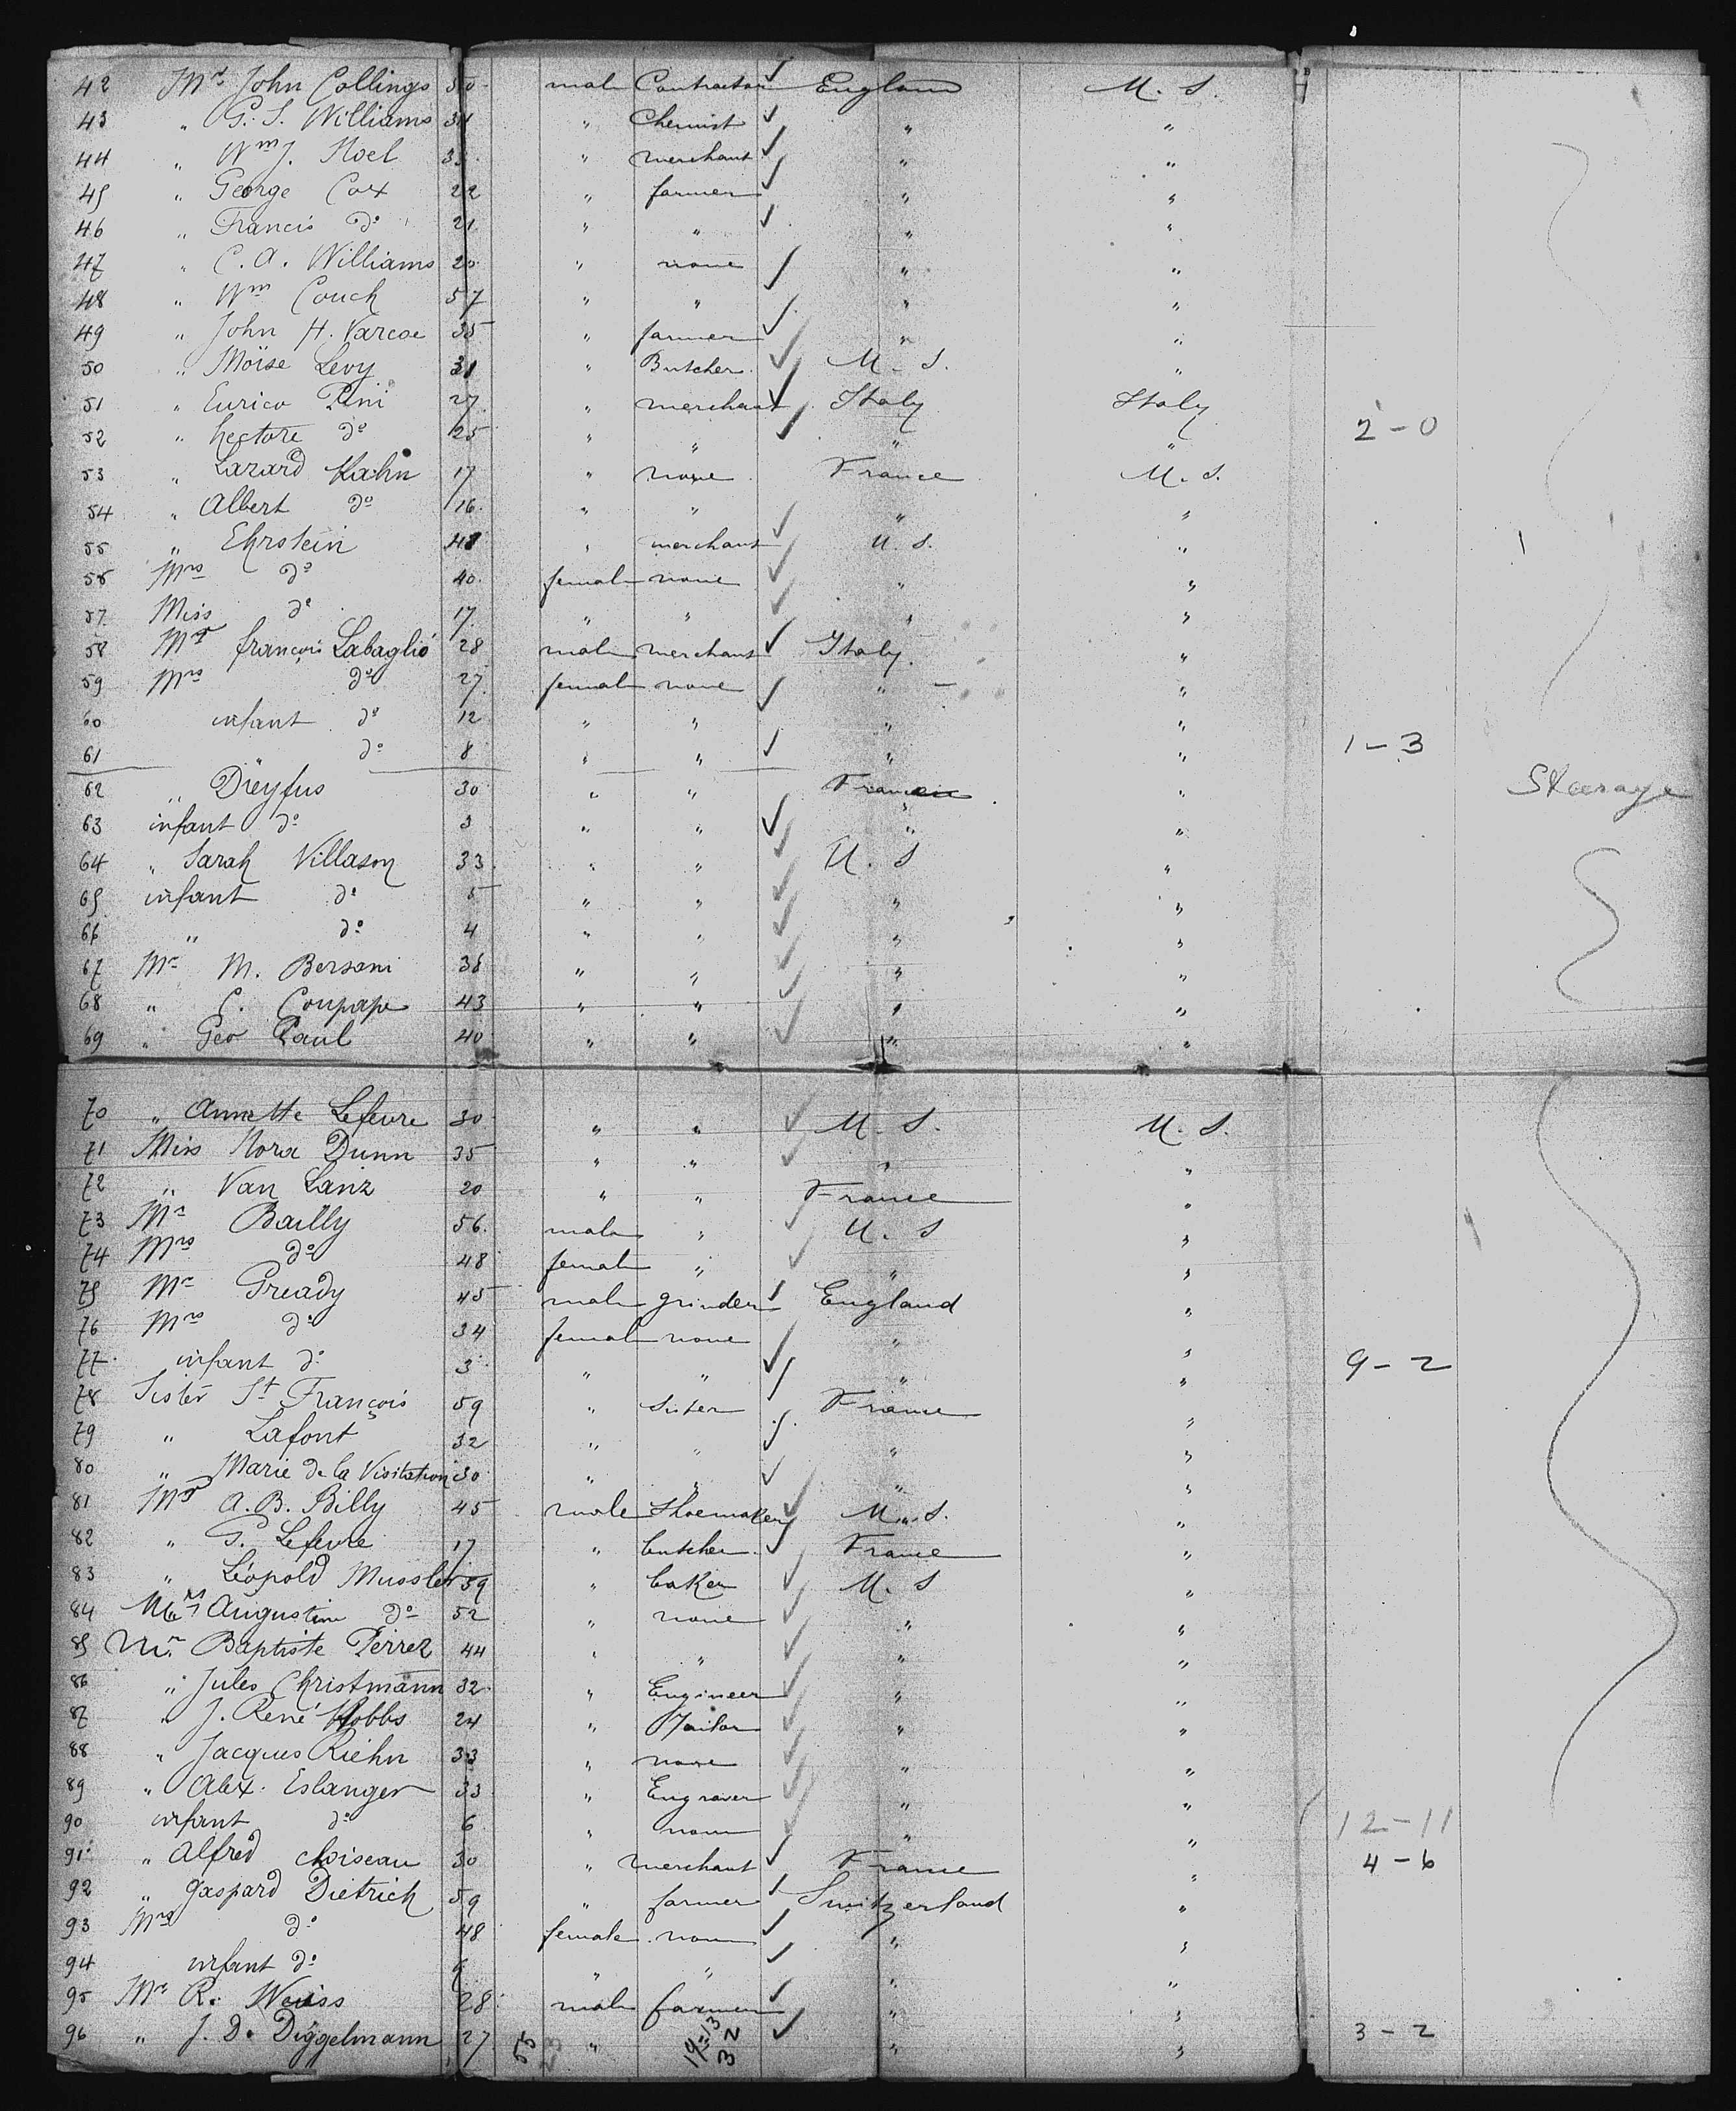 42 Mr John Collings 50 male Contractor ✓ England U. S.
43 " G. S. Williams 34 " Chemist ✓ " "
44 " Wm J. Noel 35 " merchant ✓ " "
45 " George Cox 22 " farmer ✓ " "
46 " Francis do 21 " " ✓ " "
47 " C. A. Williams 20 " none ✓ " "
48 " Wm Couch 57 " " " "
49 " John H. Varcoe 35 " farmer ✓ " "
50 " Moïse Levy 31 " Butcher ✓ U. S. "
51 " Eurico Pini 27 " merchant ✓ Italy Italy
52 " hectore do 25 " " ✓ " " 2-0
53 " Lazard Kahn 17 " none France U. S.
54 " Albert do 16 " " " "
55 " Ehrstein 48 " merchant ✓ U. S. "
56 Mrs do 40 female none ✓ " "
57 Miss do 17 " " ✓ " "
58 Mr françois Labaglio 28 male merchant ✓ Italy "
59 Mrs do 27 female none ✓ " "
60 infant do 12 " " " "
61 " do 8 " " ✓ " " 1-3
62 " Dreyfus 30 " " France " Steerage
63 infant do 3 " " ✓ " "
64 " Sarah Villason 33 " " ✓ U. S "
65 infant do 5 " " ✓ " "
66 " do 4 " " ✓ " "
67 Mr M. Bersoni 38 " " ✓ " "
68 " C. Coupape 43 " " ✓ " "
69 " Geo Paul 40 " " ✓ " "
70 " Annette Lefevre 30 " " ✓ U. S. U. S.
71 Miss Nora Dunn 35 " " ✓ " "
72 " Van Lanz 20 " " France "
73 Mr Bailly 56 male " ✓ U. S "
74 Mrs do 48 female " ✓ " "
75 Mr Pready 45 male grinder ✓ England "
76 Mrs do 34 female none ✓ " "
77 infant do 3 " " ✓ " " 9-2
78 Sister St François 59 " Sister ✓ France "
79 " Lafont 32 " " ✓ " "
80 " Marie de la Visitation 30 " " ✓ " "
81 Mr A. B. Billy 45 male Shoemaker ✓ U. S. "
82 " G. Lefevre 17 " butcher ✓ France "
83 " Léopold Mussler 59 " baker ✓ U. S "
84 Mrs Augustine do 52 " none ✓ " "
85 Mr Baptiste Perrez 44 " " ✓ " "
86 " Jules Christmann 32 " Engineer ✓ " "
87 " J. René Hobbs 24 " Tailor ✓ " "
88 " Jacques Riehn 33 " none ✓ " "
89 " Alex. Eslanger 33 " Engraver ✓ " "
90 infant do 6 " none ✓ " " 12-11
91 " Alfred Choiseau 30 " merchant ✓ France " 4-6
92 " Gaspard Dietrich 59 " farmer ✓ Switzerland "
93 Mrs do 48 female none ✓ " "
94 infant do 9 " " ✓ " "
95 Mr R. Weiss 28 male farmer ✓ " "
96 " J. D. Diggelmann 27 " ✓ " " 3-2
55 23 19-13 32